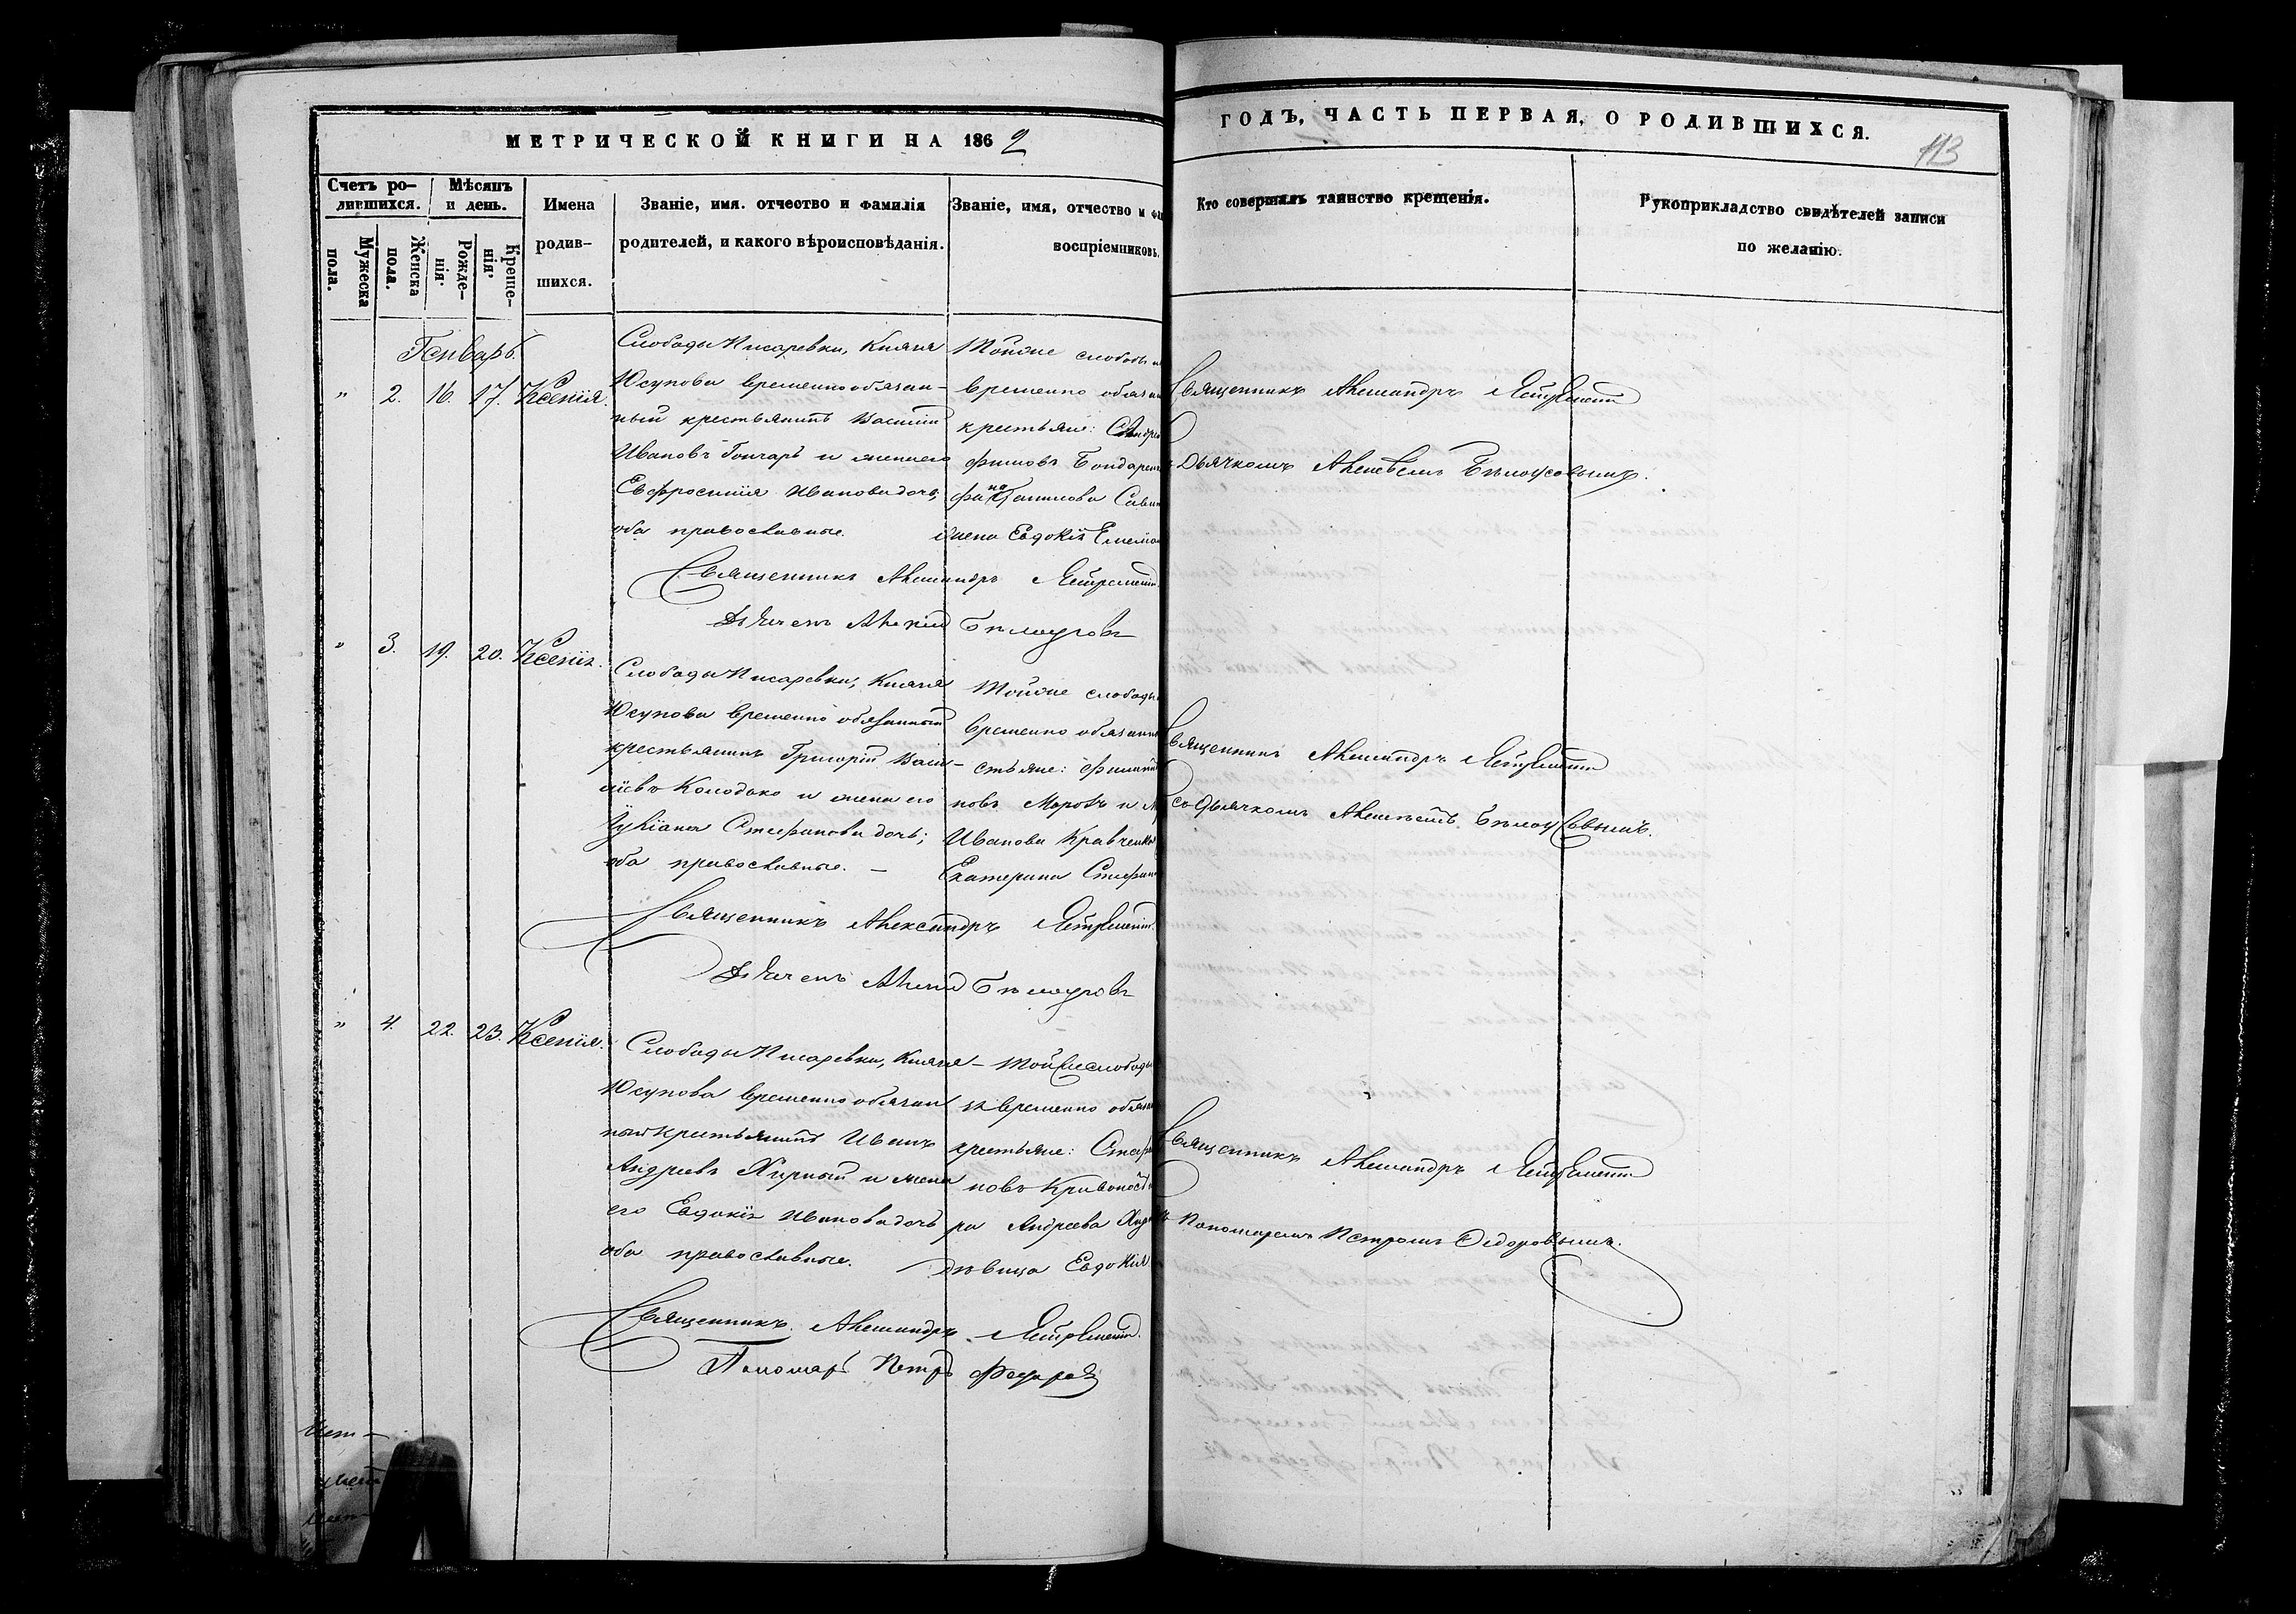 МЕТРИЧЕСКОЙ КНИГИ НА 1862
ГОДЪ, ЧАСТЬ ПЕРВАЯ, О РОДИВШИХСЯ.
113
Счетъ ро-
дившихся.
Мѣсяцъ
и день.
Мужеска
пола.
Женска
пола.
Рожде-
нія.
Креще-
нія.
Имена
родив-
шихся.
Званіе, имя. отчество и фамилія
родителей, и какого вѣроисповѣданія.
Званіе, имя, отчество и фа
воспріемниковъ.
Кто совершалъ таинство крещенія.
Рукоприкладство свидѣтелей записи
по желанію.
Генварь.
" 2. 16. 17. Ксенія.
Слободы Писаревки, Князя
Юсупова временно обязан-
ный крестьянинъ Василій
Ивановъ Гончаръ и жена его
Евфросинія Иванова дочь;
оба православные.
Тойже слободы
временно обязан
крестьяне: Андре
Бондарен
жена Евдокія
Священникъ Александръ
Дьячкомъ Алексѣемъ Бѣлоусовымъ.
Священникъ Александръ
Дьячекъ Алексій Бѣлоусовъ
" 3. 19. 20. Ксенія.
Слободы Писаревки, Князя
Юсупова временно обязанный
крестьянинъ Григорій Васи-
ліевъ Колодько и жена его
Іуліанія Стефанова дочь;
оба православные. —
Тойже слободы
временно обязанны
стьяне: Филип
новъ Морозъ и
Иванова Кравченко
Екатерина Стефан
Священникъ Александръ
со Дьячкомъ Алексѣемъ Бѣлоусовымъ.
Священникъ Александръ
Дьячекъ Алексій Бѣлоусовъ
" 4. 22. 23. Ксенія.
Слободы Писаревки, Князя
Юсупова временно обязан
ный крестьянинъ Иванъ
Андреевъ Жирный и жена
его Евдокія Иванова дочь
оба православные.
Тойже слободы
временно обязан
крестьяне: Стеф
новъ
ра Андреева
дѣвица Евдокія
Священникъ Александръ
Пономаремъ Петромъ Ѳедоровымъ.
Священникъ Александръ
Пономарь Петръ Федоровъ